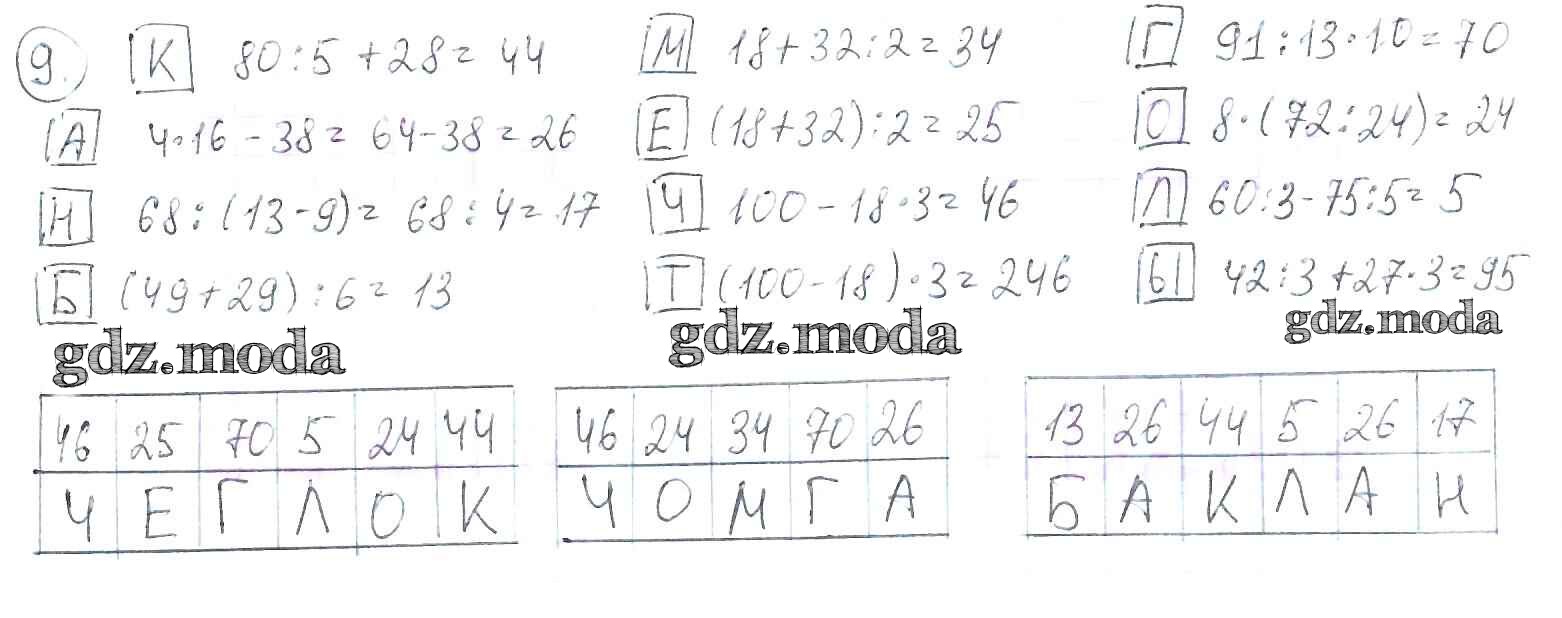 9. К 80:5+28=44 М 18+32:2=34 Г 91:13·10=70
А 4·16-38=64-38=26 Е (18+32):2=25 О 8·(72:24)=24
Н 68:(13-9)=68:4=17 Ч 100-18·3=46 Л 60:3-75:5=5
Б (49+29):6=13 Т (100-18)·3=246 Ы 42:3+27·3=95
gdz.moda gdz.moda gdz.moda
46 25 70 5 24 44 46 24 34 70 26 13 26 44 5 26 17
Ч Е Г Л О К Ч О М Г А Б А К Л А Н